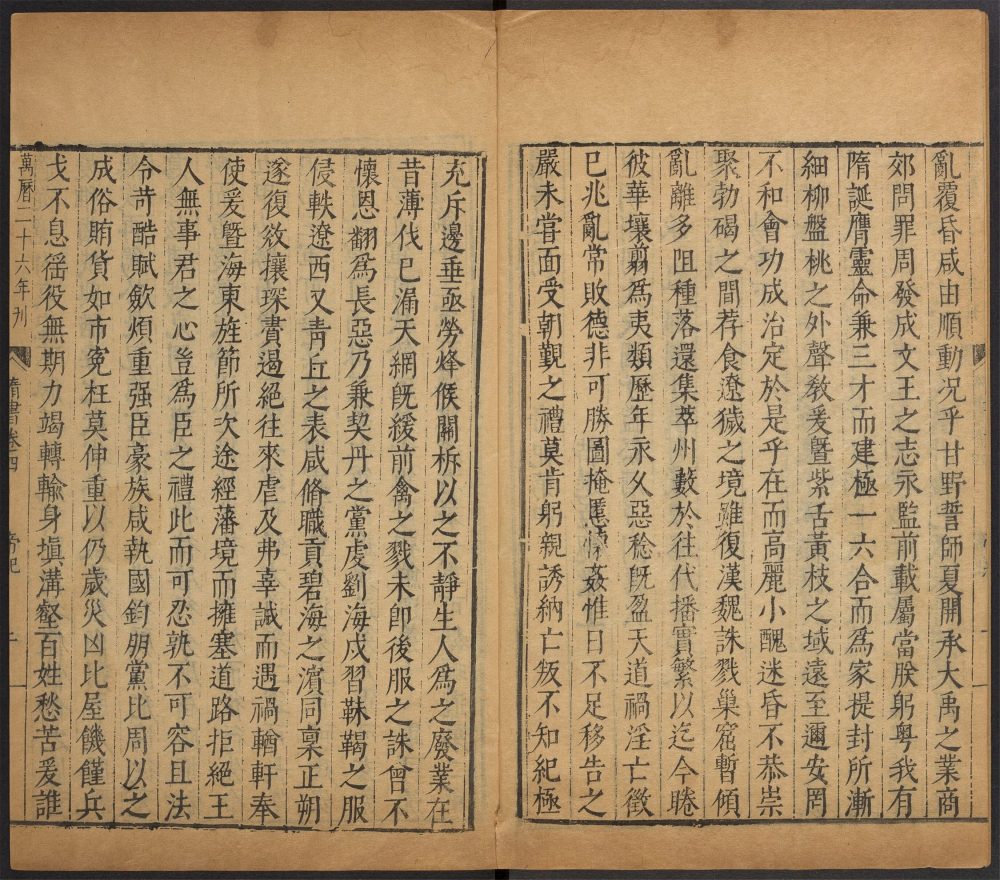 亂覆昏咸由順動况乎甘野誓師夏開承大禹之業商
郊問罪周發成文王之志永監前載屬當朕躬粤我有
隋誕膺靈命兼三才而建極一六合而爲家提封所漸
細柳盤桃之外聲敎爰曁紫舌黃枝之域遠至邇安罔
不和會功成治定於是乎在而高麗小醜迷昏不恭崇
聚勃碣之間荐食遼穢之境雖復漢魏誅戮巢窟暫傾
亂離多阻種落還集萃州藪於往代播實繁以迄今睠
彼華壤翦爲夷類歷年永久惡稔旣盈天道禍淫亡徵
已兆亂常敗德非可勝圖掩慝懷姦惟日不足移告之
嚴未嘗面受朝覲之禮莫肯躬親誘納亡叛不知紀極
充斥邊垂亟勞烽候關柝以之不靜生人爲之廢業在
昔薄伐已漏天網旣緩前禽之戮未卽後服之誅曾不
懷恩翻爲長惡乃兼契丹之黨虔劉海戍習靺鞨之服
侵軼遼西又靑丘之表咸脩職貢碧海之濱同稟正朔
遂復敓攘琛賮遏絕往來虐及弗辜誠而遇禍輶軒奉
使爰曁海東旌節所次途經藩境而擁塞道路拒絕王
人無事君之心豈爲臣之禮此而可忍孰不可容且法
令苛酷賦斂煩重强臣豪族咸執國鈞朋黨比周以之
成俗賄貨如市寃枉莫伸重以仍歲災凶比屋饑饉兵
戈不息徭役無期力竭轉輸身塡溝壑百姓愁苦爰誰
萬曆二十六年刋
隋書卷四 帝紀 二